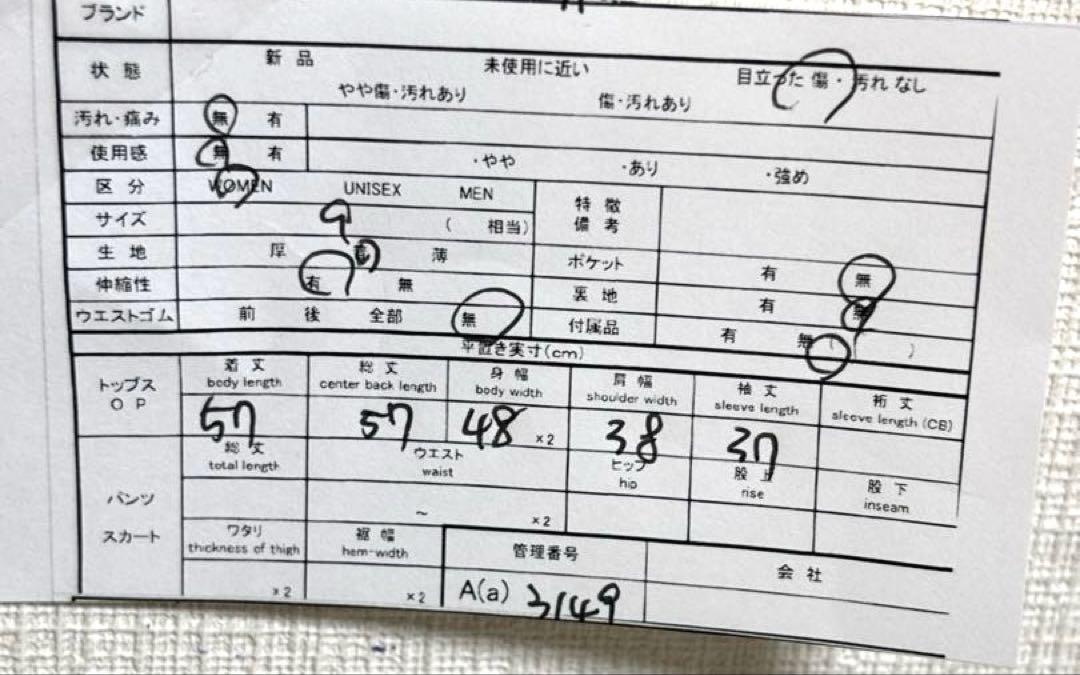 ブランド
状態 新品 未使用に近い 目立った傷・汚れなし
やや傷・汚れあり 傷・汚れあり
汚れ・痛み 無 有
使用感 無 有 ・やや ・あり ・強め
区分 WOMEN UNISEX MEN
特徴
備考
サイズ 9 ( 相当)
生地 厚 薄
ポケット 有 無
伸縮性 有 無
裏地 有 無
ウエストゴム 前 後 全部 無
付属品 有 無 ( )
平置き実寸(cm)
トップス
OP
着丈 総丈 身幅 肩幅 袖丈 裄丈
body length center back length body width shoulder width sleeve length sleeve length (CB)
57 57 48 ×2 38 37
総丈 ウエスト ヒップ 股上 股下
total length waist hip rise inseam
パンツ
スカート
~ ×2
ワタリ 裾幅 管理番号 会社
thickness of thigh hem-width
×2 ×2 A(a) 3149